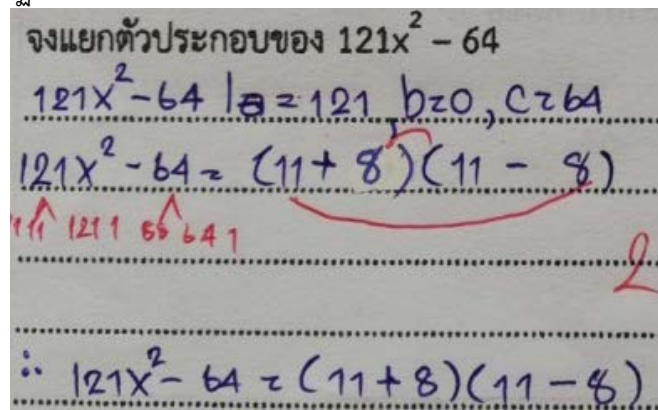 จงแยกตัวประกอบของ 121x² – 64
121x² - 64 | a = 121, b=0, c=64
121x² - 64 = (11 + 8)(11 - 8)
11 11 121 1 8 8 64 1
2
∴ 121x² - 64 = (11 + 8)(11 - 8)